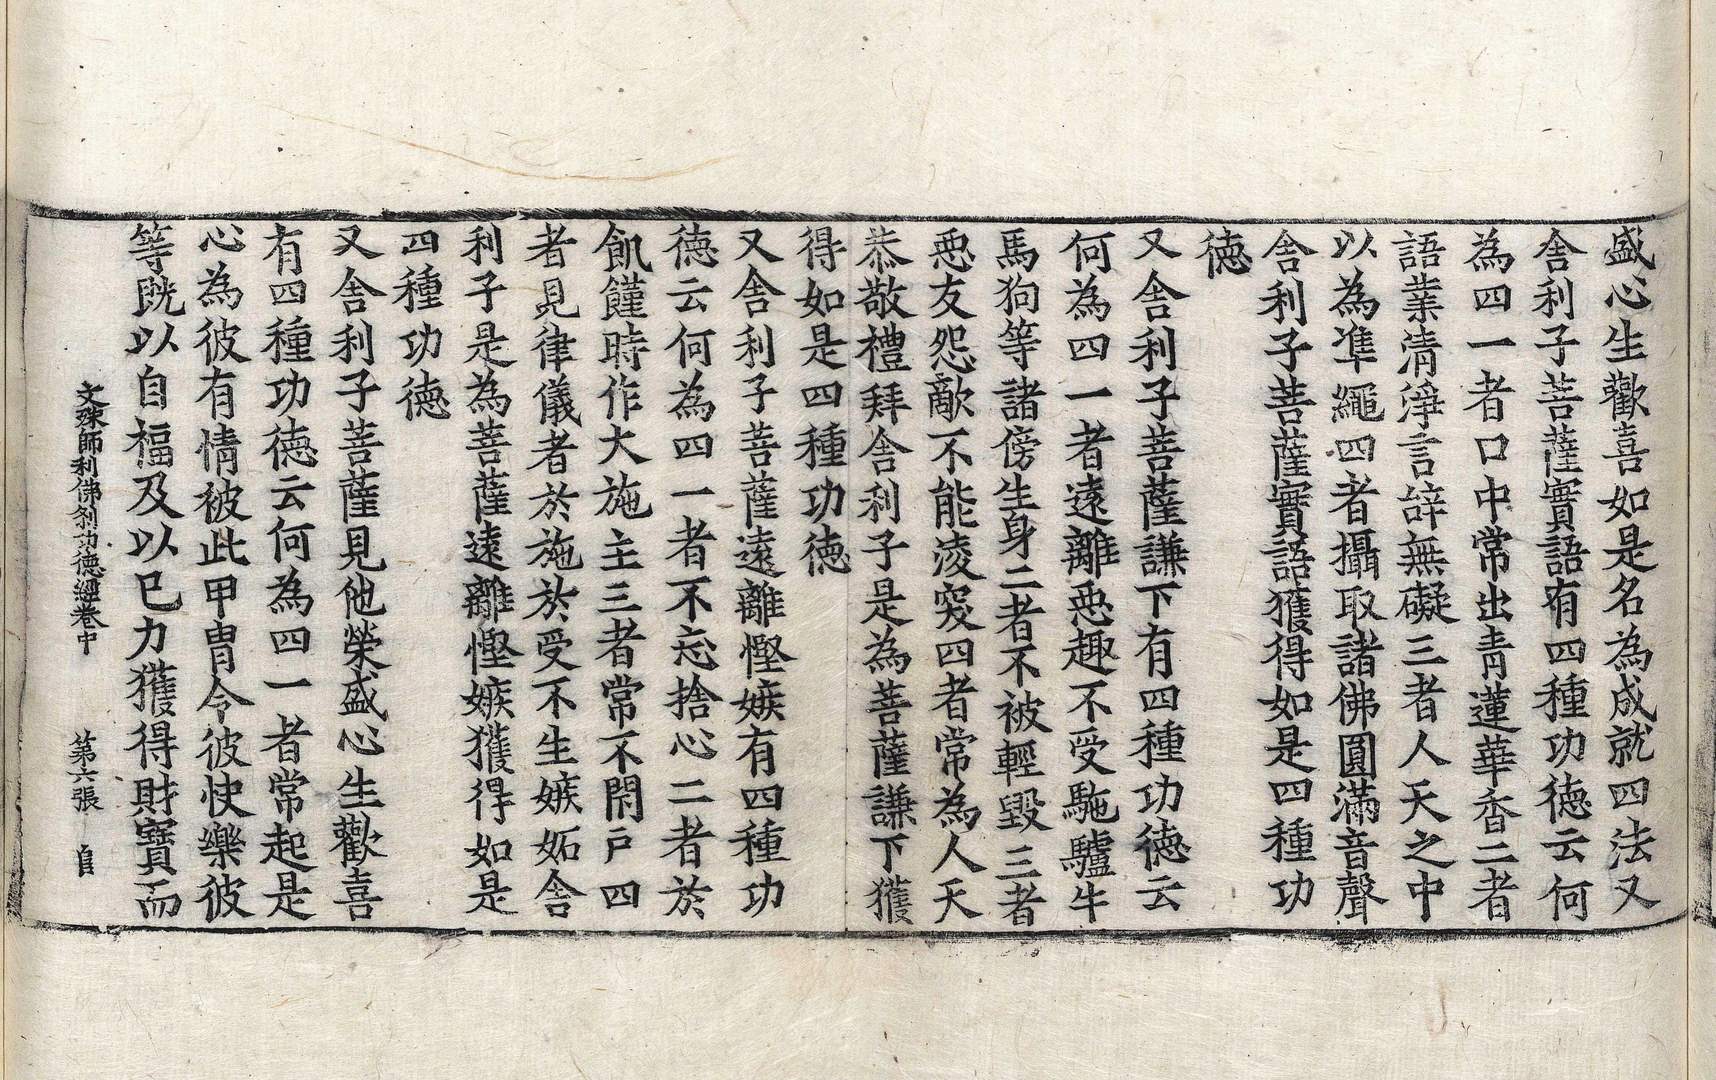 盛心生歡喜如是名為成就四法又
舍利子菩薩實語有四種功德云何
為四一者口中常出青蓮華香二者
語業清淨言辝無礙三者人天之中
以為準繩四者攝取諸佛圓滿音聲
舍利子菩薩實語獲得如是四種功
德
又舍利子菩薩謙下有四種功德云
何為四一者遠離惡趣不受駞驢牛
馬狗等諸傍生身二者不被輕毀三者
惡友怨敵不能淩突四者常為人天
恭敬禮拜舍利子是為菩薩謙下獲
得如是四種功德
又舍利子菩薩遠離慳嫉有四種功
德云何為四一者不忘捨心二者於
飢饉時作大施主三者常不閇戶四
者見律儀者於施於受不生嫉妬舍
利子是為菩薩遠離慳嫉獲得如是
四種功德
又舍利子菩薩見他榮盛心生歡喜
有四種功德云何為四一者常起是
心為彼有情被此甲冑令彼快樂彼
等旣以自福及以己力獲得財寶而
文殊師利佛刹功德經卷中 第六張 自